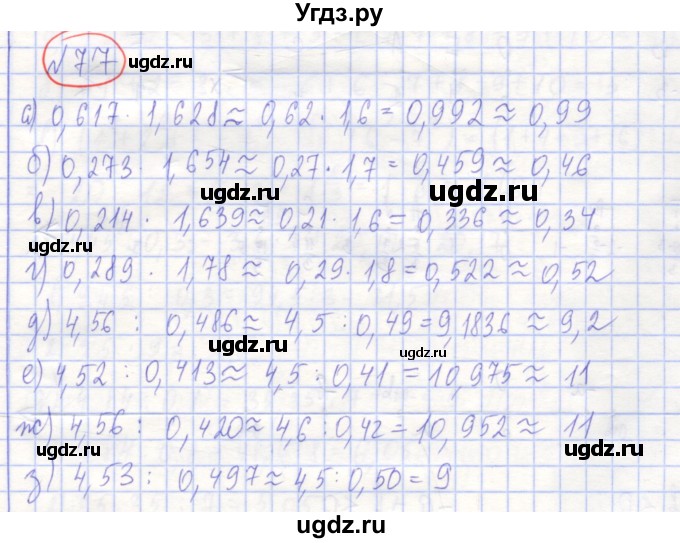 Угдз.ру
№77
ugdz.ru
а) 0,617 · 1,628 ≈ 0,62 · 1,6 = 0,992 ≈ 0,99
ugdz.ru
б) 0,273 · 1,654 ≈ 0,27 · 1,7 = 0,459 ≈ 0,46
ugdz.ru
ugdz.ru
в) 0,214 · 1,639 ≈ 0,21 · 1,6 = 0,336 ≈ 0,34
ugdz.ru
г) 0,289 · 1,78 ≈ 0,29 · 1,8 = 0,522 ≈ 0,52
ugdz.ru
д) 4,56 : 0,486 ≈ 4,5 : 0,49 = 9,1836 ≈ 9,2
ugdz.ru
ugdz.ru
е) 4,52 : 0,413 ≈ 4,5 : 0,41 = 10,975 ≈ 11
ugdz.ru
ugdz.ru
ж) 4,56 : 0,420 ≈ 4,6 : 0,42 = 10,952 ≈ 11
ugdz.ru
з) 4,53 : 0,497 ≈ 4,5 : 0,50 = 9
ugdz.ru
ugdz.ru